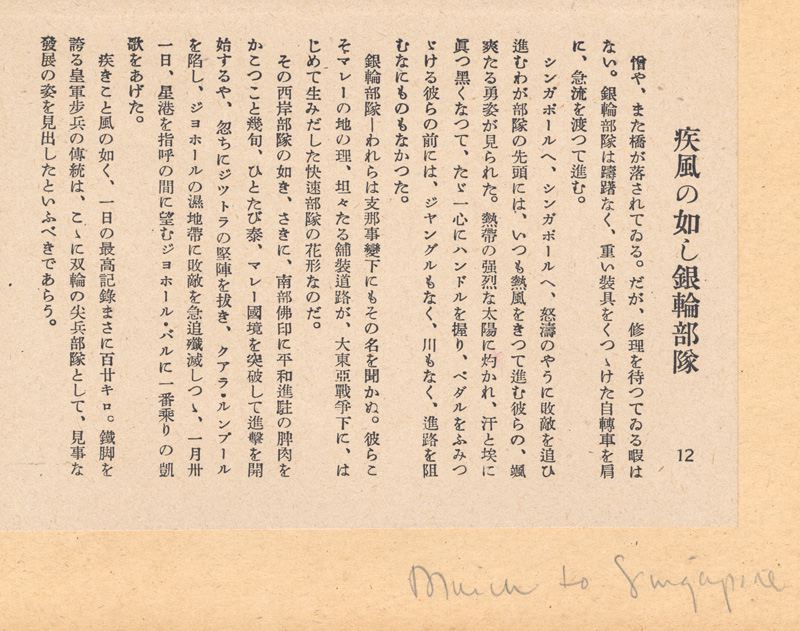 疾風の如し銀輪部隊
12
憎や、また橋が落されてゐる。だが、修理を待つてゐる暇は
ない。銀輪部隊は躊躇なく、重い裝具をくつゝけた自轉車を肩
に、急流を渡つて進む。
シンガポールへ、シンガポールへ、怒濤のやうに敗敵を追ひ
進むわが部隊の先頭には、いつも熱風をきつて進む彼らの、颯
爽たる勇姿が見られた。熱帶の强烈な太陽に灼かれ、汗と埃に
眞つ黑くなつて、たゞ一心にハンドルを握り、ペダルをふみつ
ゞける彼らの前には、ジヤングルもなく、川もなく、進路を阻
むなにものもなかつた。
銀輪部隊―われらは支那事變下にもその名を聞かぬ。彼らこ
そマレーの地の理、坦々たる舖裝道路が、大東亞戰爭下に、は
じめて生みだした快速部隊の花形なのだ。
その西岸部隊の如き、さきに、南部佛印に平和進駐の脾肉を
かこつこと幾旬、ひとたび泰、マレー國境を突破して進擊を開
始するや、忽ちにジツトラの堅陣を拔き、クアラ・ルンプール
を陷し、ジヨホールの濕地帶に敗敵を急追殲滅しつゝ、一月卅
一日、星港を指呼の間に望むジヨホール・バルに一番乘りの凱
歌をあげた。
疾きこと風の如く、一日の最高記錄まさに百廿キロ。鐵脚を
誇る皇軍步兵の傳統は、こゝに双輪の尖兵部隊として、見事な
發展の姿を見出したといふべきであらう。
March to Singapore